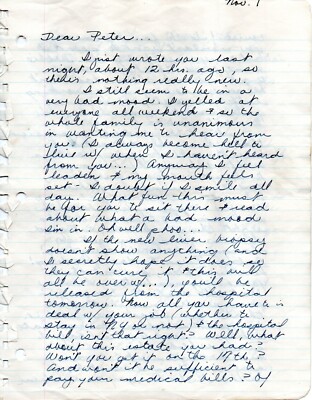 Nov. 1
Dear Peter...
I just wrote you last
night, about 12 hrs. ago, so
there's nothing really new.
I still seem to be in a
very bad mood. I yelled at
everyone all weekend & so the
whole family is unanimous
in wanting me to hear from
you. (I always become hell to
live w/ when I haven't heard
from you...) Anyway I feel
leaden & my mouth feels
set - I doubt if I smile all
day. What fun this must
be for you to sit there & read
about what a bad mood
I'm in. Oh well phoo...
If the new liver biopsy
doesn't show anything (and
I secretly hope it does so
they can cure it & this will
all be over w/...), you'll be
released from the hospital
tomorrow. Now all you have to is
deal w/ your job (whether to
stay in NY or not) & the hospital
bill, isn't that right? Well, what
about this estate you had?
Won't you get it on the 17th?
And won't it be sufficient to
pay your medical bills? Of